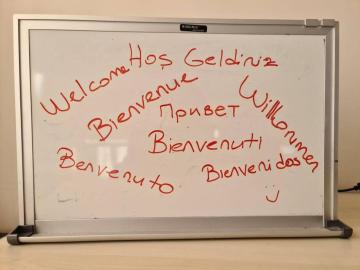 Welcome
Hoş Geldiniz
Bienvenue
Привет
Willkommen
Bienvenuti
Benvenuto
Bienvenidos